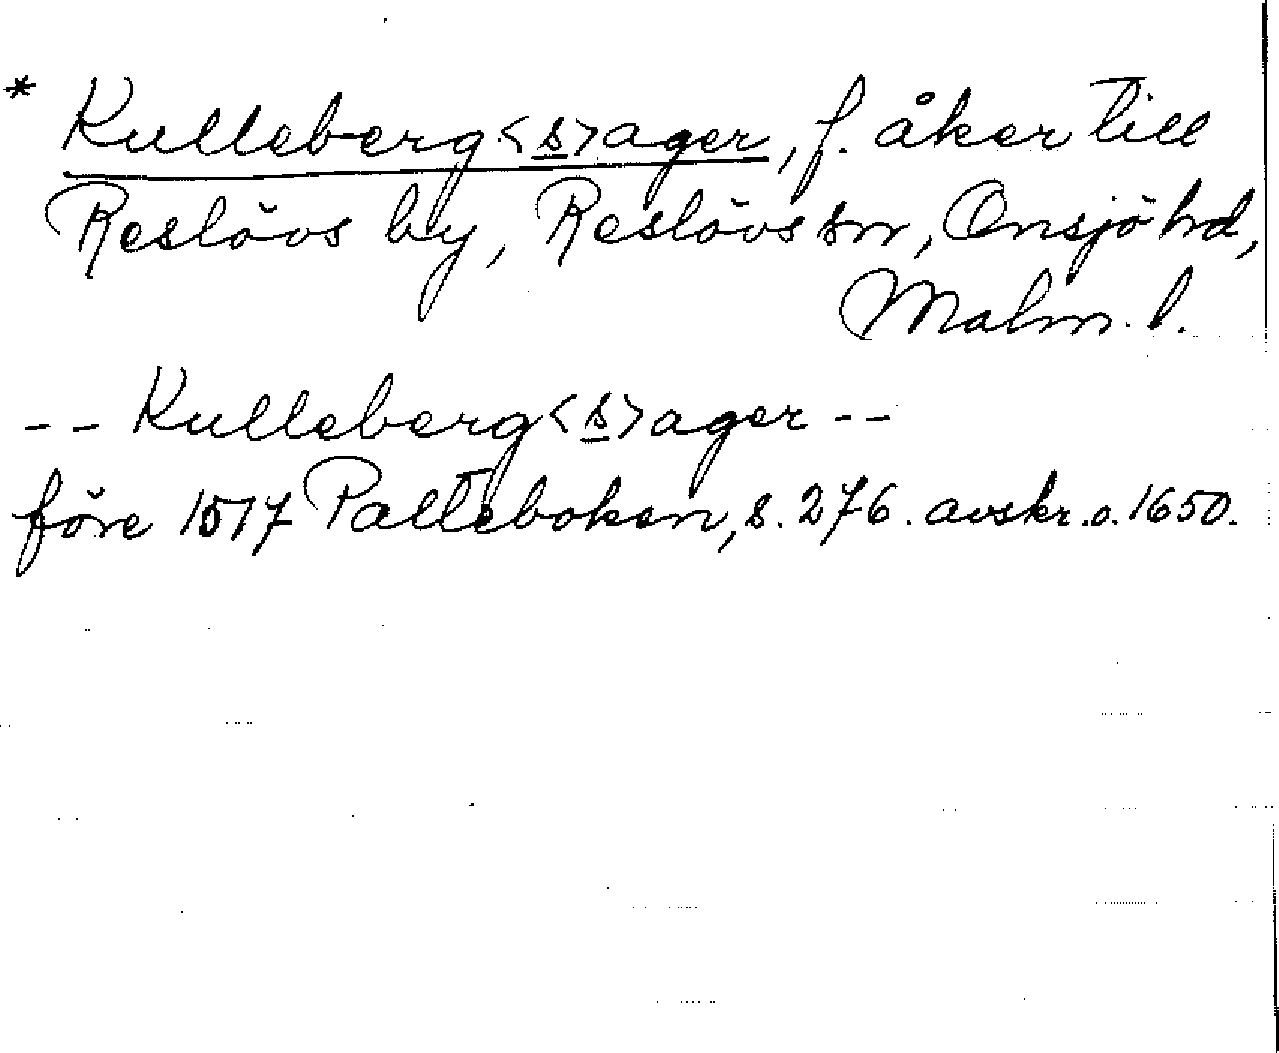 * Kulleberg<s>ager, f. åker till
Reslövs by, Reslövs sn, Onsjö hd,
Malm. l.
-- Kulleberg<s>ager --
före 1517 Palteboken, s. 276. avskr. o. 1650.